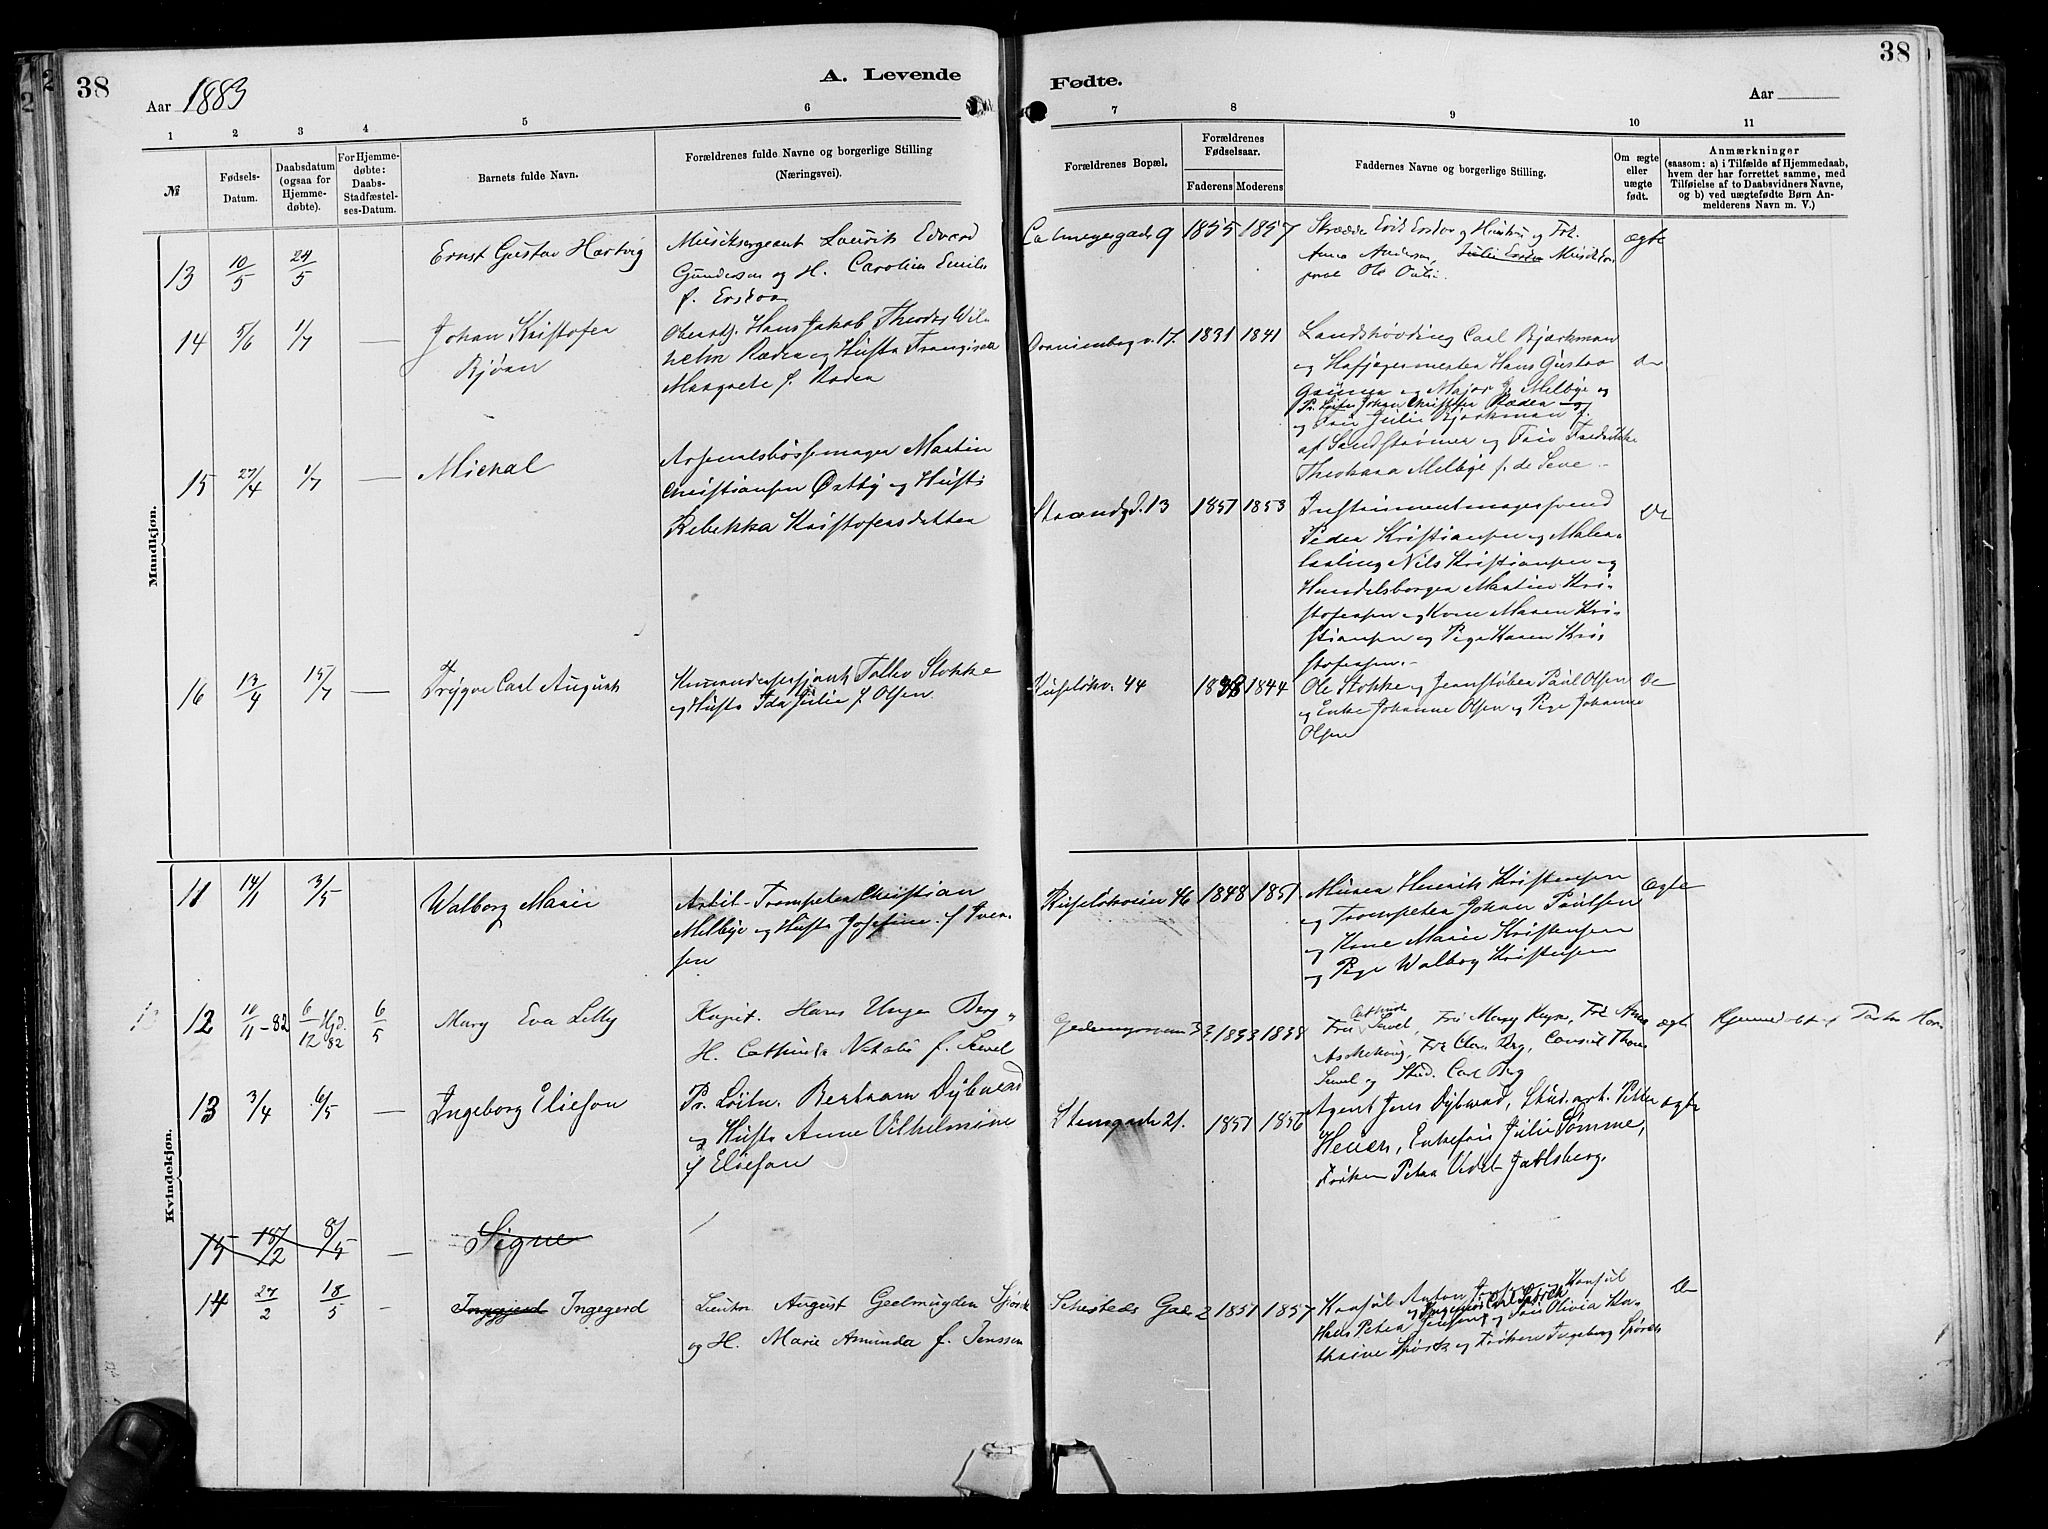 38
Aar 1883
A. Levende
Fødte.
38
Aar
1
2
3
4
5
6
7
8
9
10
11
№
Fødsels-
Datum.
Daabsdatum
(ogsaa for
Hjemme-
døbte).
For Hjemme-
døbte:
Daabs-
Stadfæstel-
ses-Datum.
Barnets fulde Navn.
Forældrenes fulde Navne og borgerlige Stilling
(Næringsvei).
Forældrenes Bopæl.
Forældrenes
Fødselsaar.
Faderens
Moderens
Faddernes Navne og borgerlige Stilling.
Om ægte
eller
uægte
født.
Anmærkninger
(saasom: a) i Tilfælde af Hjemmedaab,
hvem der har forrettet samme, med
Tilføielse af to Daabsvidners Navne,
og b) ved uægtefødte Børn An-
melderens Navn m. V.)
Mandkjøn.
13 10/5 24/5
Ernst Gustav Hartvig
Musiksergeant Laurits Edvard
Gundersen og H. Caroline Emilie
f.
Calmeyergade 9
1855 1857
og Hustru og Frk.
Anna Andersen, Julie
Ole
ægte
14 5/6 1/7 —
Johan Kristofer
Bjørn
Oberstl. Hans Jakob Theodor Wil-
helm Ræder og Hustr Franziska
Margrete f. Ræder
Oranienborgv. 17.
1831 1841
Landshøvding Carl Bjørkman
og Hofjægermester Hans Gustav
og Major J. Melbye og
Pr. Løitn Johan Christopher Ræder og
og Frue Julie Bjørkman f.
af Sandstrømer og Frue Fredrikke
Theokara Melbye f. de Seve.
Do
15 27/4 1/7 —
Michal
Arsenalsbøssemager Martin
Christiansen Østby og Hustr
Rebekka Kristofersdatter
Strandgd. 13
1851 1853
Instrumentmagersvend
Peder Kristiansen og Maler-
lærling Nils Kristiansen og
Handelsborger Martin Kri-
stofersen og Kone Maren Kri-
stiansen og Pige Karen Kri-
stofersen.
Do
16 13/4 15/7 —
Trygve Carl August
Kommandersersjant Tollev Stokke
og Hustr Ida Julie f. Olsen
Ruseløkv. 44
1838 1844
Ole Stokke og Jernstøber Paul Olsen
og Enke Johanne Olsen og Pige Johanne
Olsen
Do
Kvindekjøn.
11 14/1 3/5
Walborg Marie
Artil-Trompeter Christian
Melbye og Hustr Josefine f. Iver-
sen
Ruseløkveien 46
1848 1851
Murer Henrik Kristensen
og Trompeter Johan Paulsen
og Kone Marie Kristensen
og Pige Walborg Kristensen
Ægte
12 10/11-82 6/12 Hjd. 82 6/5
Mary Eva Lilly
Kapit. Hans Unger Berg,
H. Cathinda Natalie f. Sewel
1833 1838
Cathinde
Fru Sewel, Frk Mary Keyn, Frk Anna
Aschehoug, Frk Clara Berg, Consul Thom
Sewel og Stud. Carl Berg
ægte
Hjemmedøbt af
13 3/4 6/5 —
Ingeborg Eliefon
Pr. Løitn. Bertram Dybwad
og Hustr Anne Vilhelmine
f Eliefon
Stensgade 21.
1851 1856
Agent Jens Dybwad, Stud. art. Petter
Heuer, Enkefru Julie Somme,
Frøken Petra Vedel Jarlsberg.
ægte
15 18/2 8/5 —
Signe
14 27/2 18/5 -
Ingegjerd Ingegerd
Lieutn. August Geelmuyden Spørck
og H. Marie Amunda f. Jenssen
Sehesteds Gade 2
1851 1857
Konsul Anton Jenssen, Konsul
og Ingeniør Carl Spørck
Hans Peter Jenssen og Frue Olivia Ka-
thrine Spørck og Frøken Ingeborg Spørck
Do